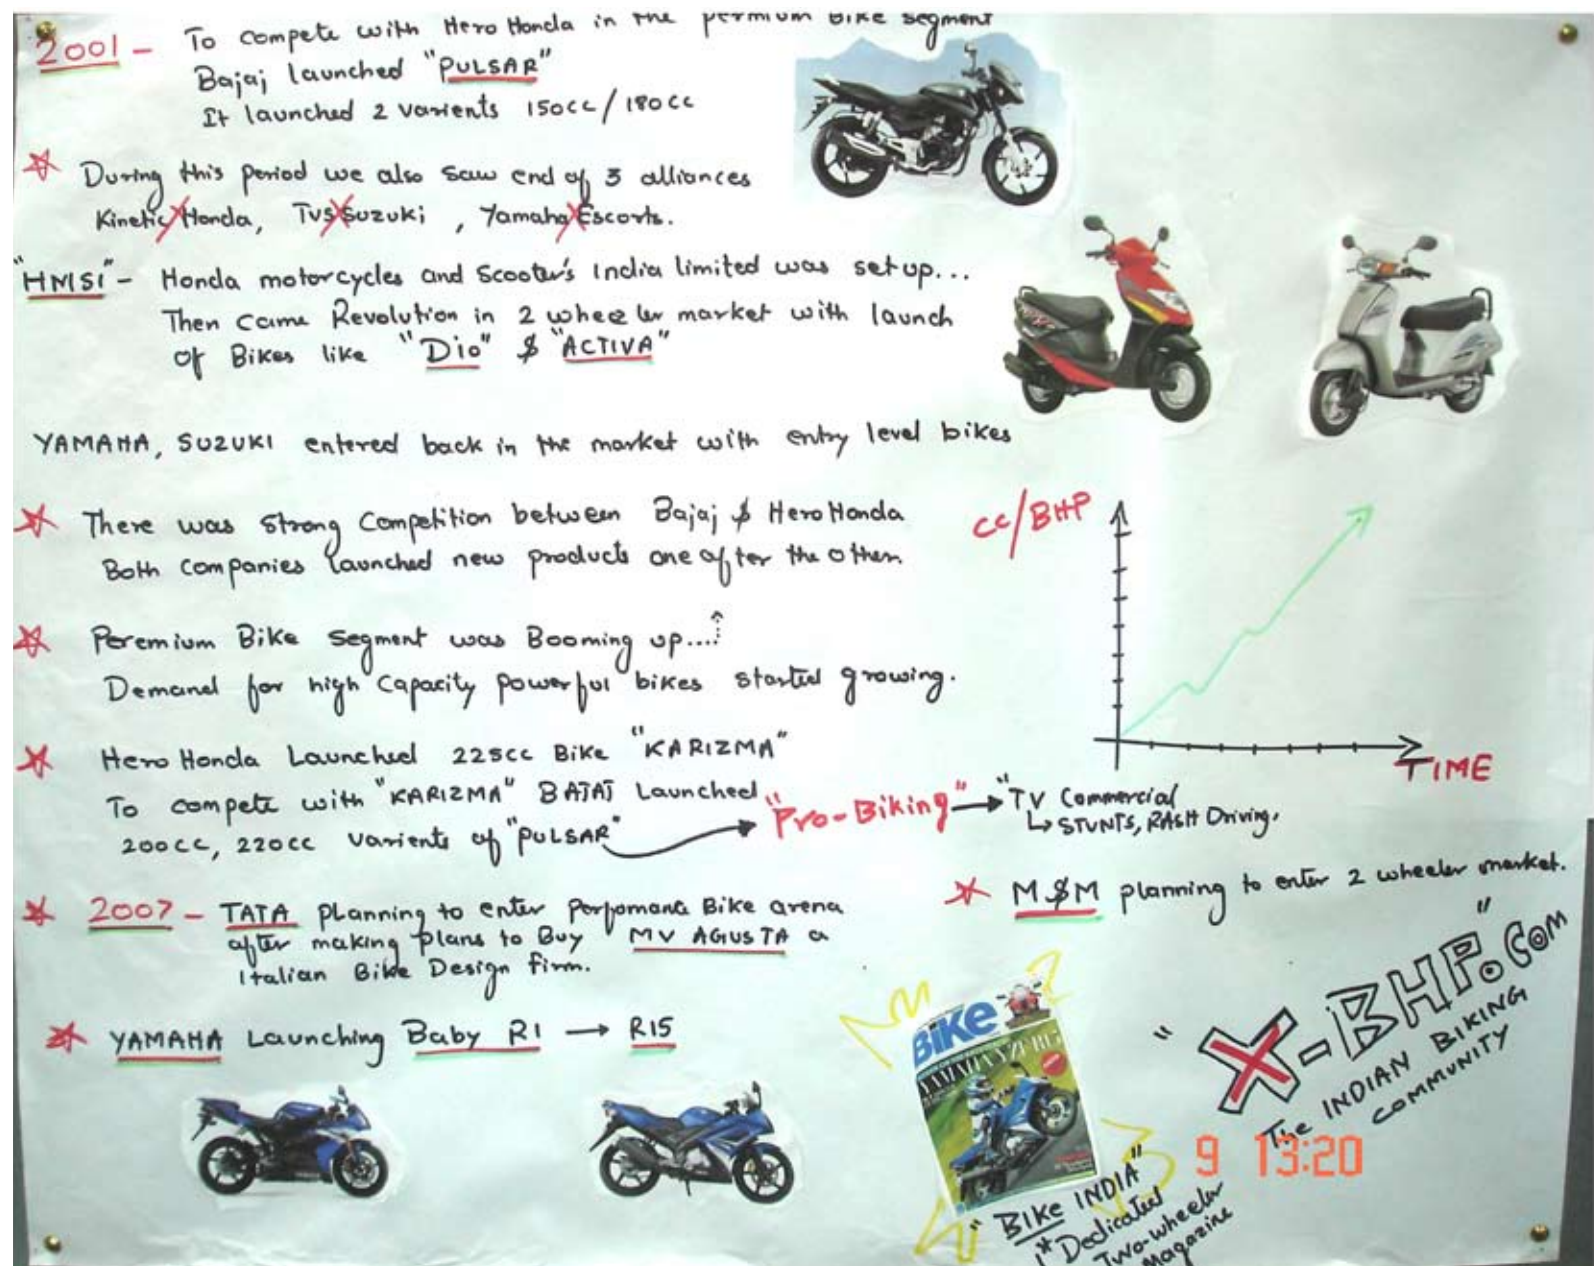 2001 - To compete with Hero Honda in the permium Bike segment
Bajaj launched "PULSAR"
It launched 2 varients 150cc/180cc
During this period we also saw end of 3 alliances
Kinetic X Honda, TVS X Suzuki, Yamaha X Escorts.
"HMSI" - Honda motorcycles and Scooter's India limited was set up...
Then came Revolution in 2 wheeler market with launch
of Bikes like "Dio" & "ACTIVA"
YAMAHA, SUZUKI entered back in the market with entry level bikes
There was strong Competition between Bajaj & Hero Honda
Both companies launched new products one after the other.
CC/BHP
TIME
Peremium Bike segment was Booming up....
Demand for high capacity powerful bikes started growing.
Hero Honda Launched 225cc Bike "KARIZMA"
To compete with "KARIZMA" BAJAJ Launched
200CC, 220CC varients of "PULSAR"
"Pro-Biking"
"TV Commercial
STUNTS, RASH Driving.
M&M planning to enter 2 wheeler market.
2007 - TATA planning to enter Perfomance Bike arena
after making plans to Buy MV AGUSTA a
Italian Bike Design firm.
YAMAHA Launching Baby R1 → R15
"X-BHP.COM"
The INDIAN BIKING
COMMUNITY
BIKE
9 13:20
"BIKE INDIA"
Dedicated
Two-wheeler
Magazine